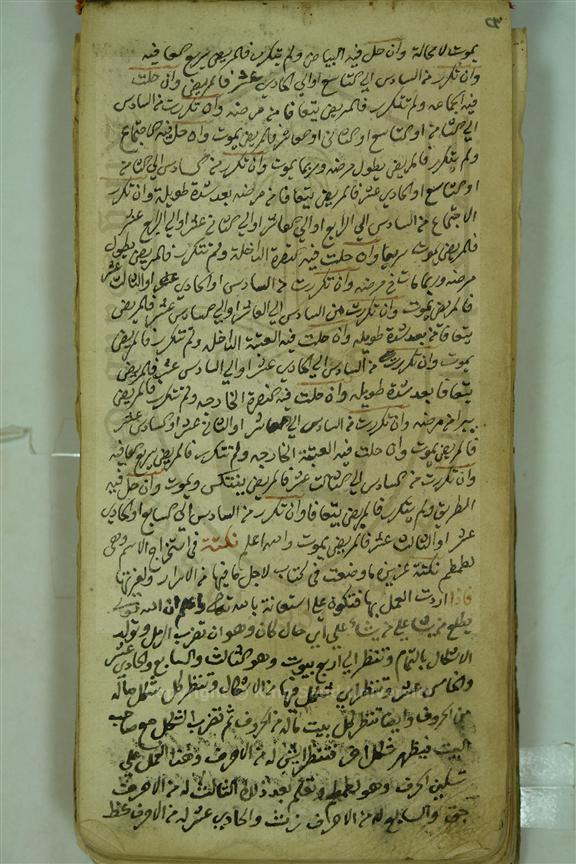 يموت لا محالة وان حل فيه البياض ولم يتكرر فالمريض سريع العافيه
وان تكرر من السادس الي التاسع او الي الحادي عشر فالمريض وان حلت
فيه الجماعه ولم تتكرر فالمريض يتعافا من مرضه وان تكررت من السادس
الي الثامن او التاسع او الثاني او العاشر فالمريض يموت وان حل فيه الاجتماع
ولم يتكرر فالمريض يطول مرضه وربما يموت وان تكرر من السادس الي الثامن
او التاسع او الحادي عشر فالمريض يتعافا من مرضه بعد شدة طويلة وان تكرر
الاجتماع من السادس الي الرابع او الي العاشر او الي الثاني عشر او الي الرابع عشر
فالمريض يموت سريعا وان حلت فيه النصرة الداخلة ولم تتكرر فالمريض يطول
مرضه وربما مات في مرضه وان تكررت من السادس او الحادي عشر او الثالث عشر
فالمريض يموت وان تكررت من السادس الي العاشر او الي السادس عشر فالمريض
يتعافا من بعد شدة طويله وان حلت فيه العتبة الداخله ولم تتكرر فالمريض
يموت وان تكررت من السادس الي الحادي عشر او الي السادس عشر فالمريض
يتعافا بعد شدة طويله وان حلت فيه النصرة الخارجه ولم تتكرر فالمريض
يبرا من مرضه وان تكررت من السادس الي العاشر او الثاني عشر او السادس عشر
فالمريض يموت وان حلت فيه العتبة الخارجه ولم تتكرر فالمريض سريع العافيه
وان تكررت من السادس الي الثالث عشر فالمريض ينتكس ويموت وان حل فيه
الطريق ولم يتكرر فالمريض يتعافا وان تكرر من السادس الي السابع او الحادي
عشر او الثالث عشر فالمريض يموت والله اعلم نكتة في استخراج الاسم وهي
لطمطم نكتة عزيزه ما وضعت في كتاب لاجل ما فيها من الاسرار ولعزتها
فاذا اردت العمل بها فتكون علي استعانة بالله تعالي واعلم ان الله
يطلع من يشا علي من يشاء علي اي حال كان وهو ان تضرب الرمل وتولد
الاشكال بالتمام وتنظر الي اربع بيوت وهو الثالث والسابع والحادي عشر
والخامس عشر وتنظر اي شكل فيها من الاشكال وتنظر كل شكل ماله
من الحروف وايضا تنظر كل بيت ماله من الحروف ثم تضرب الشكل مع صاحب
البيت فيظهر شكل اخر فتنظر ايش له من الاحرف وهذا العمل علي
تسكين الحرف وهو لطمطم وتعلم بعد ذلك الثالث له من الاحرف
والسابع له من الاحرف والحادي عشر له من الاحرف